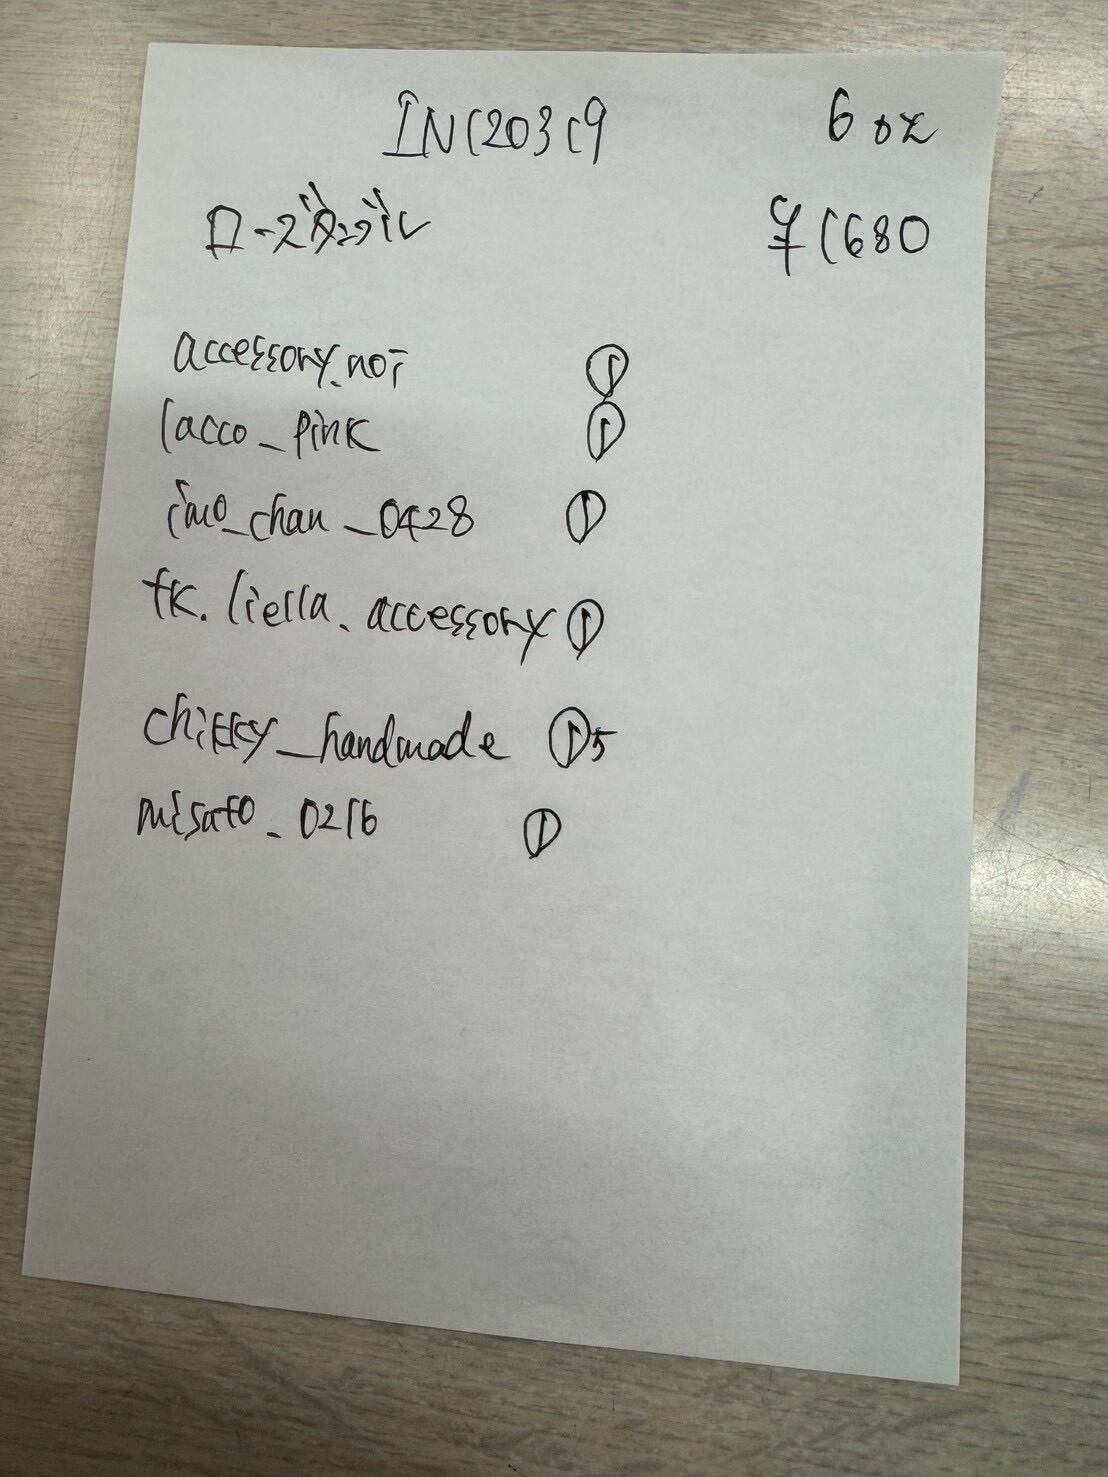 IN120319 6oz
ローズダズル ¥1680
accessory.noi ①
lacco_pink ①
imo_chan_0428 ①
tk.liella.accessory ①
chikky_handmade ①5
misato_0216 ①